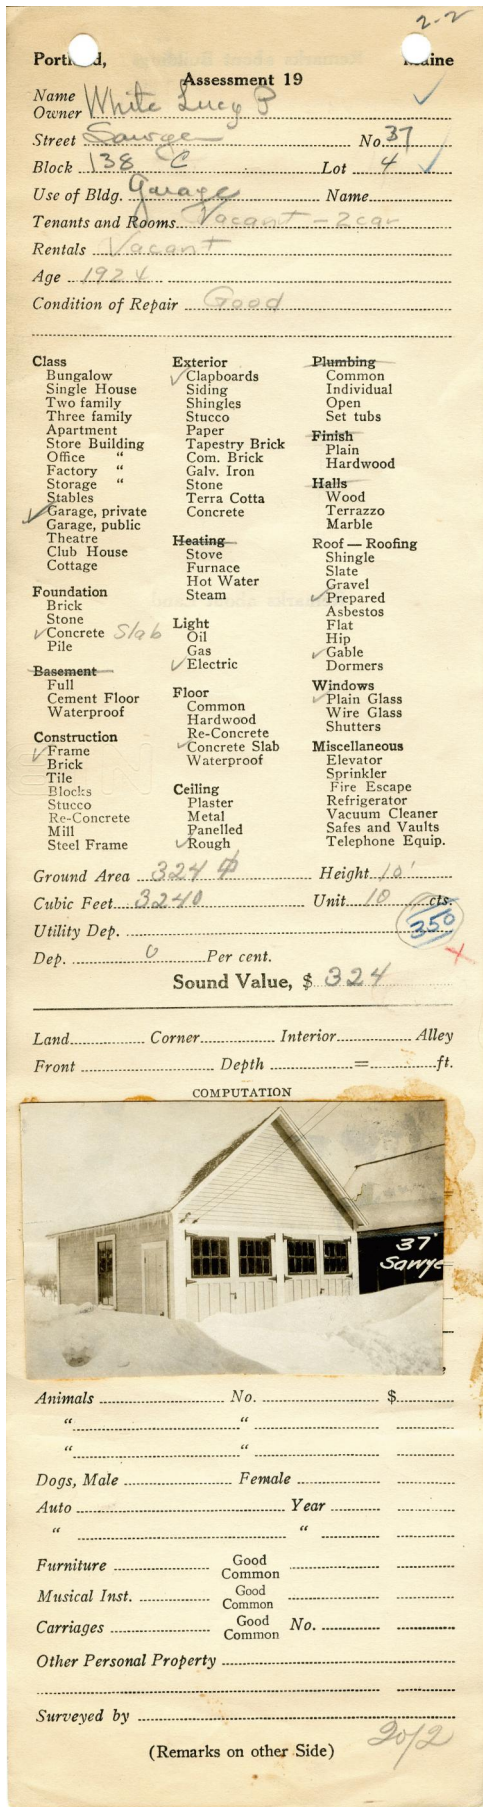 2-2
Portland, Maine
Assessment 19
Name
Owner White Lucy P
Street Sawyer No. 37
Block 138 C Lot 4
Use of Bldg. Garage Name
Tenants and Rooms Vacant - 2 car
Rentals Vacant
Age 1924
Condition of Repair Good
Class
Bungalow
Single House
Two family
Three family
Apartment
Store Building
Office "
Factory "
Storage "
Stables
Garage, private
Garage, public
Theatre
Club House
Cottage
Foundation
Brick
Stone
Concrete Slab
Pile
Basement
Full
Cement Floor
Waterproof
Construction
Frame
Brick
Tile
Blocks
Stucco
Re-Concrete
Mill
Steel Frame
Exterior
Clapboards
Siding
Shingles
Stucco
Paper
Tapestry Brick
Com. Brick
Galv. Iron
Stone
Terra Cotta
Concrete
Heating
Stove
Furnace
Hot Water
Steam
Light
Oil
Gas
Electric
Floor
Common
Hardwood
Re-Concrete
Concrete Slab
Waterproof
Ceiling
Plaster
Metal
Panelled
Rough
Plumbing
Common
Individual
Open
Set tubs
Finish
Plain
Hardwood
Halls
Wood
Terrazzo
Marble
Roof — Roofing
Shingle
Slate
Gravel
Prepared
Asbestos
Flat
Hip
Gable
Dormers
Windows
Plain Glass
Wire Glass
Shutters
Miscellaneous
Elevator
Sprinkler
Fire Escape
Refrigerator
Vacuum Cleaner
Safes and Vaults
Telephone Equip.
Ground Area 324 Height 10'
Cubic Feet 3240 Unit 10 cts.
350
Utility Dep.
Dep. 0 Per cent.
Sound Value, $ 324
Land Corner Interior Alley
Front Depth = ft.
COMPUTATION
37
Sawye
Animals No. $
" "
" "
Dogs, Male Female
Auto Year
" "
Furniture Good
Common
Musical Inst. Good
Common
Carriages Good No.
Common
Other Personal Property
Surveyed by
20/2
(Remarks on other Side)